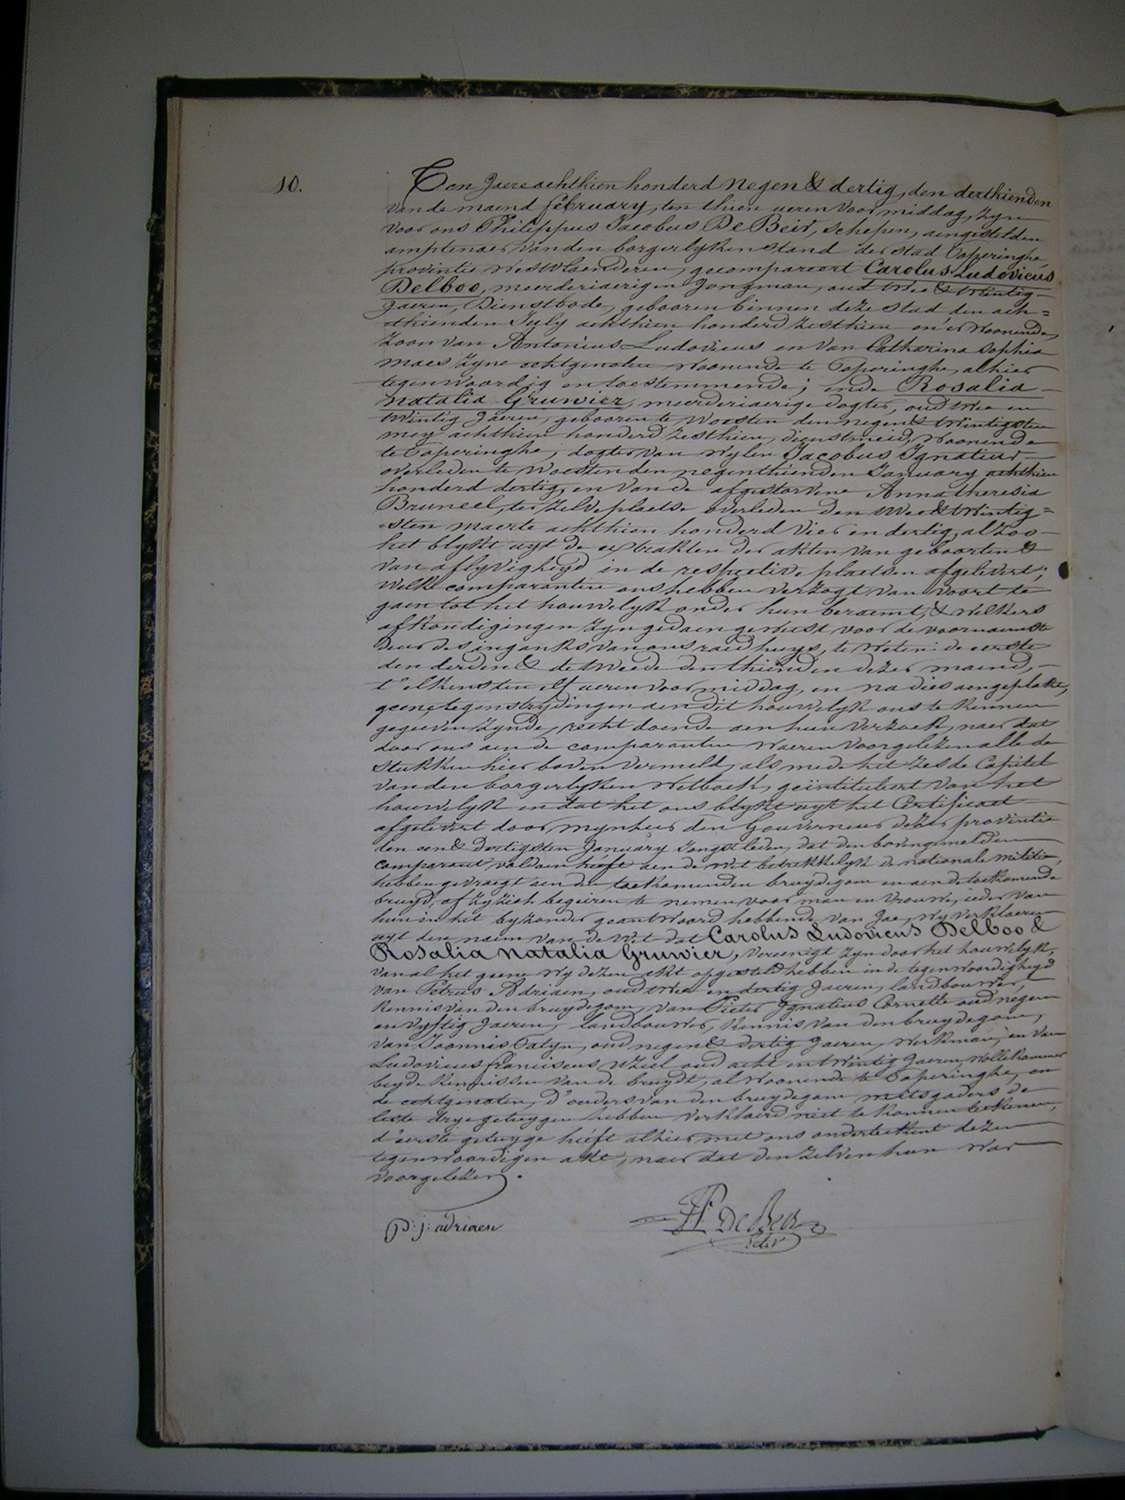 10.
Ten Jaere achthien honderd negen & dertig, den derthienden
van de maend february, ten thien ueren voor middag, zyn
voor ons Philippus Jacobus De Beir, schepen, aengestelden
amptenaer van den borgerlyken stand der stad Poperinghe
provintie Westvlaenderen, gecompareert Carolus Ludovicus
Delboo, meerderjaerigen Jongman, oud twee & twintig
Jaeren, Dienstbode, gebooren binnen deze stad den ach=
thienden July achthien honderd zesthien en er woonende,
zoon van Antonius Ludovicus en van Catharina Sophia
maes zyne echtgenoten woonende te Poperinghe, alhier
tegenwoordig en toestemmende; ende Rosalia
Natalia Gruwier, meerderjaerige dogter, oud twee en
twintig Jaeren, gebooren te Woesten den negen & twintigsten
mey achthien honderd zesthien, dienstmeid, woonende
te Poperinghe, dogter van wylen Jacobus Ignatius
overleden te Woesten den negenthienden January achthien
honderd dertig, en van de afgestorvene Anna theresia
Bruneel, ter zelve plaetse overleden den twee & twintig=
sten maerte achthien honderd vier en dertig, alzoo
het blykt uyt de extrakten der akten van geboorten &
van aflyvigheyd in de respetive plaetsen afgelevert;
Welke comparanten ons hebben verzogt van voort te
gaen tot het houwelyk onder hun beraemt, & welkers
afkondigingen zyn gedaen geweest voor de voornaemste
deur des ingangks van ons raedhuys, te weten: de eerste
den derden & de tweede den thienden dezer maend,
t'elkens ten elf ueren voor middag, en na dies aengeplakt,
geene tegenstrydingen aen dit houwelyk ons te kennen
gegeven zynde, recht doende aen hun verzoek, naer dat
door ons aen de comparanten waeren voorgelezen alle de
stukken hier boven vermeld, als mede het zesde Capitel
van den borgerlyken Wetboek, geintituleert van het
houwelyk en dat het ons blykt uyt het Certificaet
afgelevert door mynheer den Gouverneur dezer provintie
den een & dertigsten January Jongstleden, dat den bovengemelden
comparant voldaen heeft aen de wet betrekkelyk de nationale militie,
hebben gevraegt aen den toekomenden bruydegom en aen de toekomende
bruyd, of zy zich begeiren te nemen voor man en vrouwe, ieder van
hun in het byzonder geantwoord hebbende van Jae, wy verklaeren
uyt den naem van de Wet dat Carolus Ludovicus Delboo &
Rosalia Natalia Gruwier, vereenigt zyn door het houwelyk,
van al het geene wy dezen akt opgesteld hebben in de tegenwoordigheyd
van Petrus Adriaen, oud twee en dertig Jaeren, landbouwer,
kennis van den bruydegom, van Pieter Ignatius Cornette oud negen
en vyftig Jaeren, landbouwer, kennis van den bruydegom,
van Joannis Talyn, oud negen & dertig Jaeren, werkman, en van
Ludovicus franciscus oud acht en twintig Jaeren, wollekammer
beyde kennissen van de bruydt, al woonende te Poperinghe, en
de echtgenoten, D'ouders van den bruydegom mitsgaders de
leste drye getuygen hebben verklaerd niet te konnen teekenen,
d'eerste getuyge heeft alhier met ons onderteekent dezen
tegenwoordigen akt, naer dat den zelven hun was
voorgelezen.
p: j: adriaen
De Beir